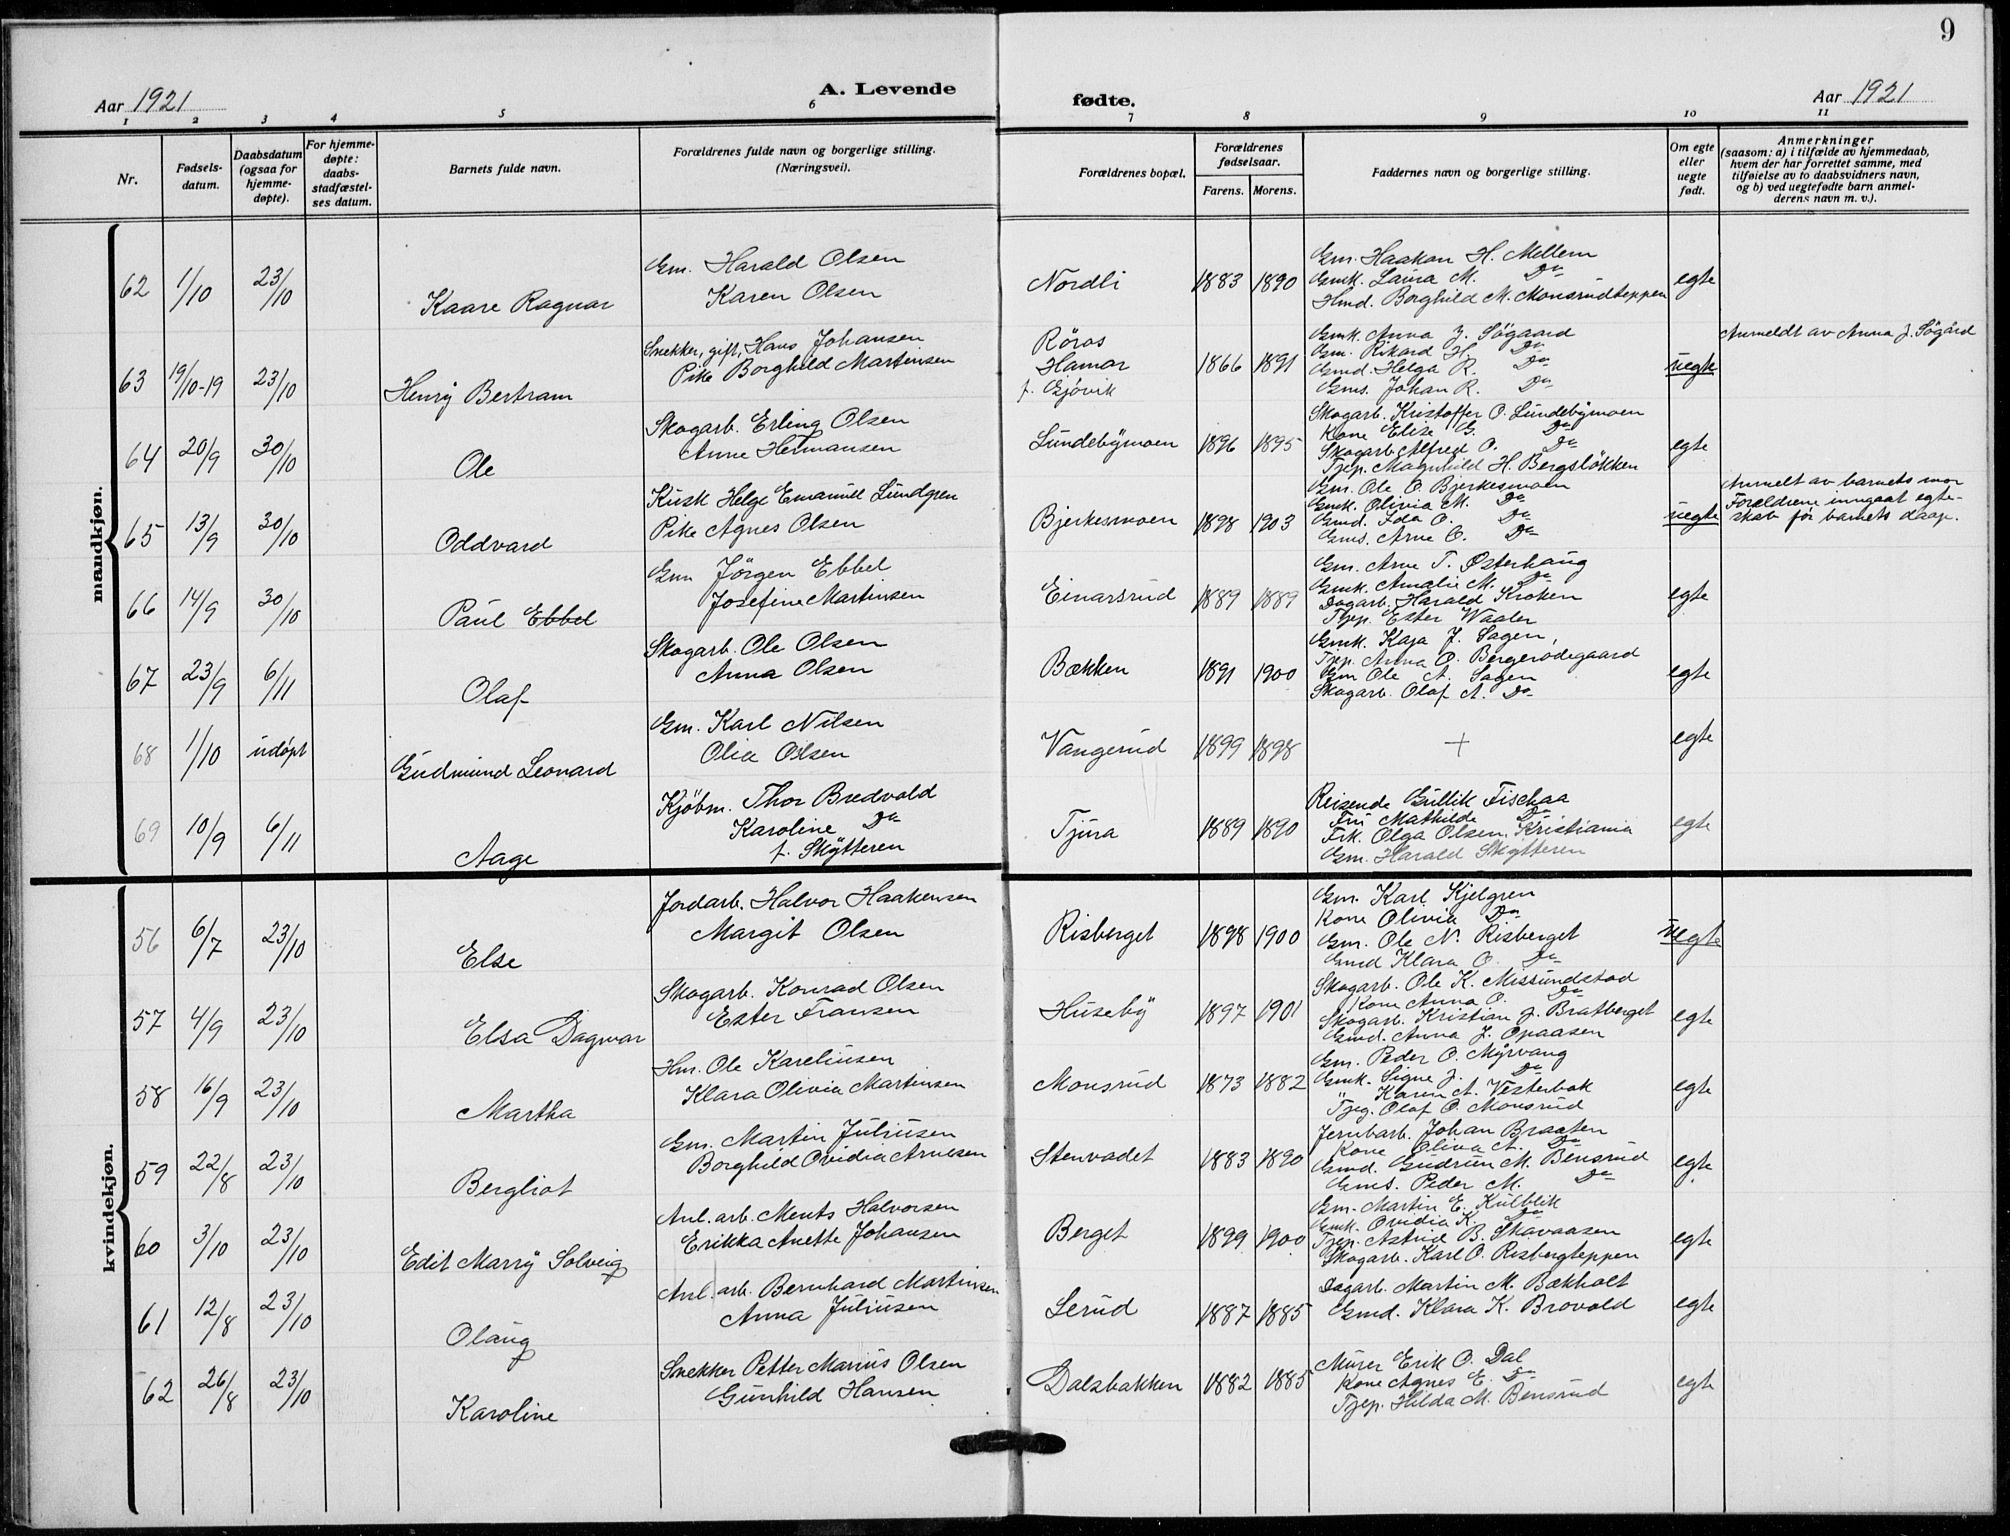 9
Aar 1921
A. Levende
fødte.
Aar 1921
1 2 3 4 5 6 7 8 9 10 11
Nr.
Fødsels-
datum.
Daabsdatum
(ogsaa for
hjemme-
døpte).
For hjemme-
døpte:
daabs-
stadfæstel-
ses datum.
Barnets fulde navn.
Forældrenes fulde navn og borgerlige stilling.
(Næringsvei).
Forældrenes bopæl.
Forældrenes
fødselsaar.
Farens. Morens.
Faddernes navn og borgerlige stilling.
Om egte
eller
uegte
født.
Anmerkninger
(saasom: a) i tilfælde av hjemmedaab,
hvem der har forrettet samme, med
tilføielse av to daabsvidners navn,
og b) ved uegtefødte barn anmel-
derens navn m. v.).
mandkjøn.
62 1/10 23/10 Kaare Ragnar
Gm. Harald Olsen
Karen Olsen
Nordli 1883 1890
Gm. Haakon H. Mellem
Gmk. Laura M. Do
Hmd. Borghild M. Monsrudteppen
egte
63 19/10-19 23/10 Henry Bertram
Snekker, gift, Hans Johansen
Pike Borghild Martinsen
Röros
Hamar
f. Gjövik
1866 1891
Gmk. Anna J. Sögaard
Gm. Rikard H. Do
Gmd. Helga R. Do
Gms. Johan R. Do
uegte
Anmeldt av Anna J. Sögård
64 20/9 30/10 Ole
Skogarb. Erling Olsen
Anne Hermansen
Lundebymoen 1896 1895
Skogarb. Kristoffer O. Lundebymoen
Kone Elise G. Do
Skogarb. Alfred O. Do
Tjep. Magnhild H. Bergslökken
egte
65 13/9 30/10 Oddvard
Kusk Helge Emanuel Lundgren
Pike Agnes Olsen
Bjerkesmoen 1898 1903
Gm. Ole O. Bjerkesmoen
Gmk. Olivia M. Do
Gmd. Ida O. Do
Gms. Arne O. Do
uegte
Anmelt av barnets mor
Forældrene inngaat egte-
skab før barnets daap.
66 14/9 30/10 Paul Ebbel
Gm Jörgen Ebbel
Josefine Martinsen
Einarsrud 1889 1889
Gm. Arne T. Österhaug
Gmk. Amalie M. Do
Dagarb. Harald Kroken
Tjep. Ester Waaler
egte
67 23/9 6/11 Olaf
Skogarb. Ole Olsen
Anna Olsen
Bækken 1891 1900
Gmk. Kaja J. Sagen,
Tjep. Anna O. Bergerödegaard
Gm Ole A. Sagen
Skogarb. Olaf A. Do
egte
68 1/10 udöpt Gudmund Leonard
Gm. Karl Nilsen
Olia Olsen
Vangerud 1899 1898
+
egte
69 10/9 6/11 Aage
Kjöbm. Thor Bredvold
Karoline Do
f. Skytteren
Tjura 1889 1890
Reisende Gullik Fischaa
Fru Mathilde Do
Frk. Olga Olsen, Kristiania
Gm. Harald Skytteren
egte
kvindekjøn.
56 6/7 23/10 Else
Jordarb. Halvor Haakensen
Margit Olsen
Risberget 1898 1900
Gm. Karl Kjelgren
Kone Olivia Do
Gm. Ole N. Risberget
Gmd Klara O. Do
uegte
57 4/9 23/10 Elsa Dagmar
Skogarb. Konrad Olsen
Ester Fransen
Huseby 1897 1901
Skogarb. Ole K. Missundstad
Kone Anna O. Do
Skogarb. Kristian J. Bratberget
Gmd. Anna J. Opaasen
egte
58 16/9 23/10 Martha
Hm. Ole Kareliusen
Klara Olivia Martinsen
Monsrud 1873 1882
Gm. Peder O. Myrvang
Gmk. Signe J. Do
" Karen A. Vesterbak
Tjeg. Olaf O. Monsrud
egte
59 22/8 23/10 Bergliot
Gm. Martin Juliusen
Borghild Ovidia Arnesen
Stenvadet 1883 1890
Jernbarb. Johan Braaten
Kone Oliva A. Do
Gmd. Gudrun M. Bensrud
Gms. Peder M. Do
egte
60 3/10 23/10 Edit Marry Solveig
Anl. arb. Ments Halvorsen
Erikka Anette Johansen
Berget 1899 1900
Gm. Martin E. Kulblik
Gmk. Ovidia K. Do
Tjep. Astrid B. Skavaasen
Skogarb. Karl O. Risbergteppen
egte
61 12/8 23/10 Olaug
Anl. arb. Bernhard Martinsen
Anna Juliusen
Lerud 1887 1885
Dagarb. Martin M. Bækholt
Gmd. Klara K. Brovold
egte
62 26/8 23/10 Karoline
Snekker Petter Marius Olsen
Gunhild Hansen
Dalsbakken 1882 1885
Murer Erik O. Dal
Kone Agnes E. Do
Tjep. Hilda M. Bensrud
egte